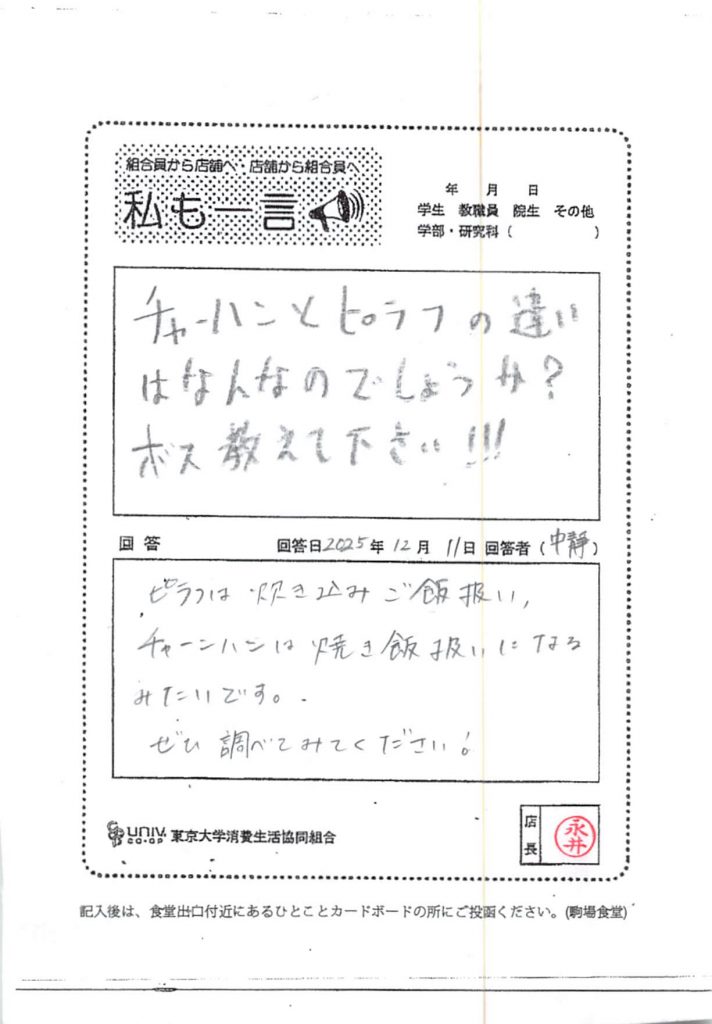 組合員から店舗へ・店舗から組合員へ
私も一言
年 月 日
学生 教職員 院生 その他
学部・研究科( )
チャーハンとピラフの違い
はなんなのでしょうか?
ボス教えて下さい!!!
回答 回答日2025年12月11日 回答者(中静)
ピラフは炊き込みご飯扱い,
チャーンハンは焼き飯扱いになる
みたいです。
ぜひ調べてみてください!
UNIV. CO-OP 東京大学消費生活協同組合
店長 永井
記入後は、食堂出口付近にあるひとことカードボードの所にご投函ください。(駒場食堂)